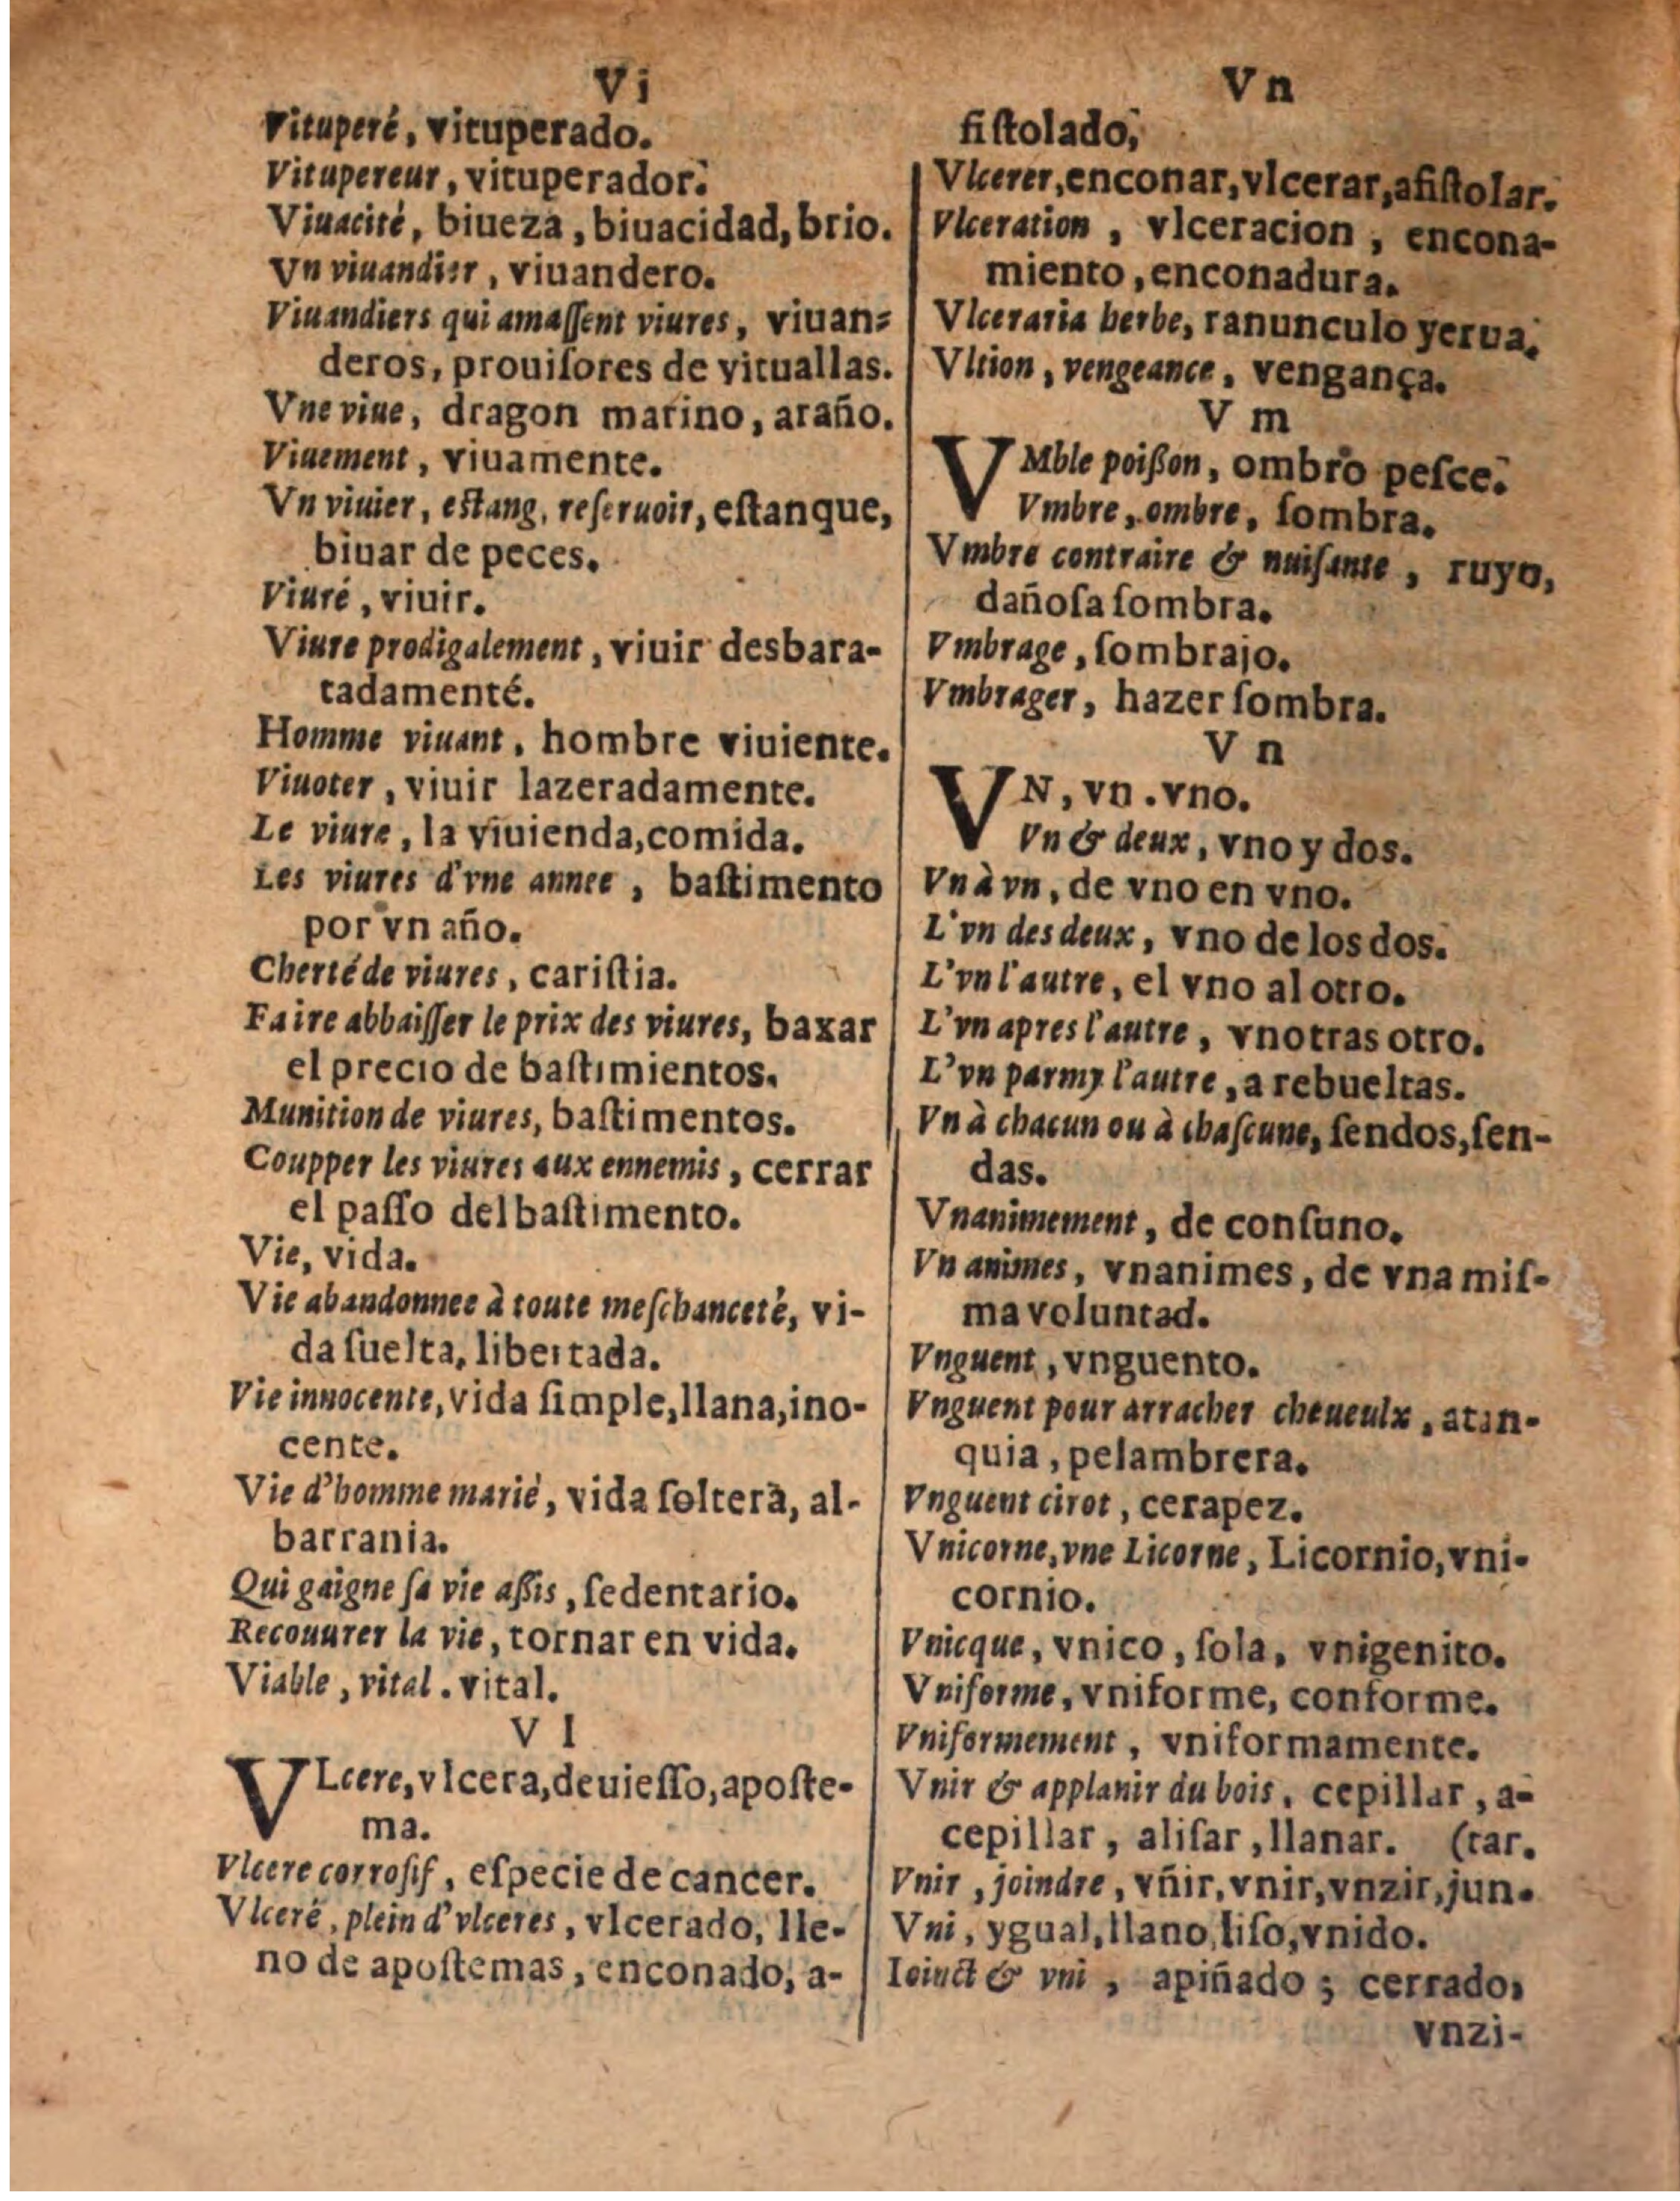 Vi
Vituperé, vituperado.
Vitupereur, vituperador.
Viuacité, biueza, biuacidad, brio.
Vn viuandier, viuandero.
Viuandiers qui amaſſent viures, viuan-
deros, prouiſores de vituallas.
Vne viue, dragon marino, araño.
Viuement, viuamente.
Vn viuier, eſtang, reſeruoir, eſtanque,
biuar de peces.
Viuré, viuir.
Viure prodigalement, viuir desbara-
tadamenté.
Homme viuant, hombre viuiente.
Viuoter, viuir lazeradamente.
Le viure, la viuienda, comida.
Les viures d'vne annee, baſtimento
por vn año.
Cherté de viures, cariſtia.
Faire abbaiſſer le prix des viures, baxar
el precio de baſtimientos.
Munition de viures, baſtimentos.
Coupper les viures aux ennemis, cerrar
el paſſo del baſtimento.
Vie, vida.
Vie abandonnee à toute meſchanceté, vi-
da ſuelta, libertada.
Vie innocente, vida ſimple, llana, ino-
cente.
Vie d'homme marié, vida ſoltera, al-
barrania.
Qui gaigne ſa vie aſſis, ſedentario.
Recouurer la vie, tornar en vida.
Viable, vital. vital.
V l
VLcere, vlcera, deuieſſo, apoſte-
ma.
Vlcere corroſif, eſpecie de cancer.
Vlceré, plein d'vlceres, vlcerado, lle-
no de apoſtemas, enconado, a-
Vn
fiſtolado,
Vlcerer, enconar, vlcerar, afiſtolar.
Vlceration, vlceracion, encona-
miento, enconadura.
Vlceraria herbe, ranunculo yerua.
Vltion, vengeance, vengança.
V m
VMble poißon, ombro peſce.
Vmbre, ombre, ſombra.
Vmbre contraire & nuiſante, ruyn,
dañoſa ſombra.
Vmbrage, ſombrajo.
Vmbrager, hazer ſombra.
V n
VN, vn. vno.
Vn & deux, vno y dos.
Vn à vn, de vno en vno.
L'vn des deux, vno de los dos.
L'vn l'autre, el vno al otro.
L'vn apres l'autre, vno tras otro.
L'vn parmy l'autre, a rebueltas.
Vn à chacun ou à chaſcune, ſendos, ſen-
das.
Vnanimement, de conſuno.
Vn animes, vnanimes, de vna miſ-
ma voluntad.
Vnguent, vnguento.
Vnguent pour arracher cheueulx, atan-
quia, pelambrera.
Vnguent cirot, cerapez.
Vnicorne, vne Licorne, Licornio, vni-
cornio.
Vnicque, vnico, ſola, vnigenito.
Vniforme, vniforme, conforme.
Vniformement, vniformamente.
Vnir & applanir du bois, cepillar, a-
cepillar, aliſar, llanar. (tar.
Vnir, joindre, vñir, vnir, vnzir, jun-
Vni, ygual, llano, liſo, vnido.
Ioinct & vni, apiñado; cerrado,
vnzi-